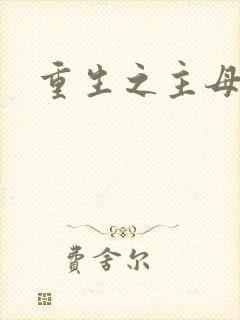 重生之主母
費舍尔